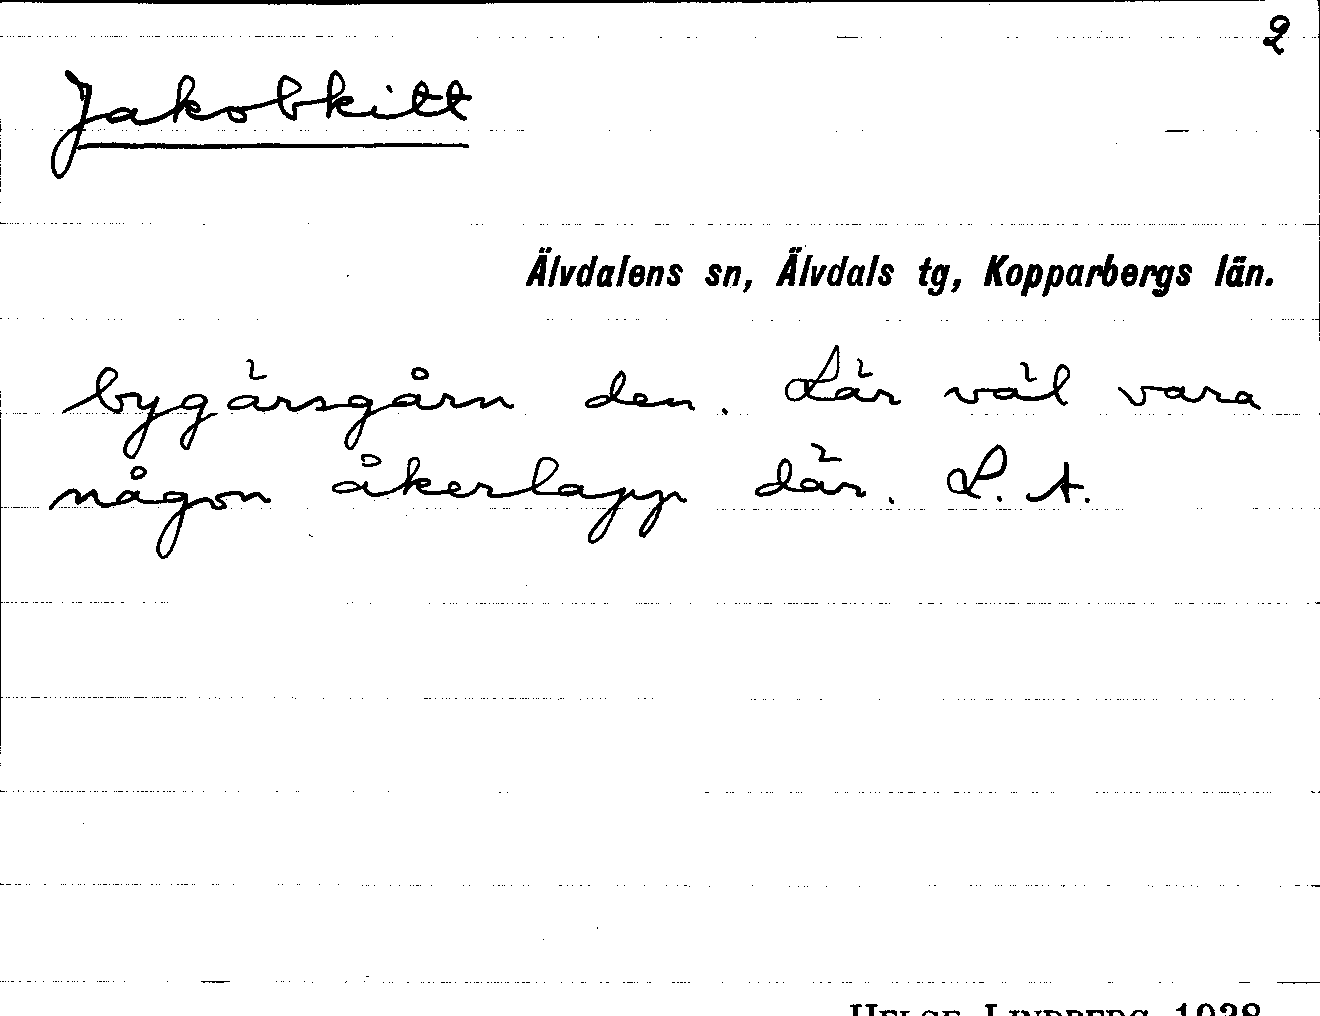 2
Jakobkitt
Älvdalens sn, Älvdals tg, Kopparbergs län.
bygärsgårn den. Lär väl vara
någon åkerlapp där. L. A.
HELGE LINDBERG 1938